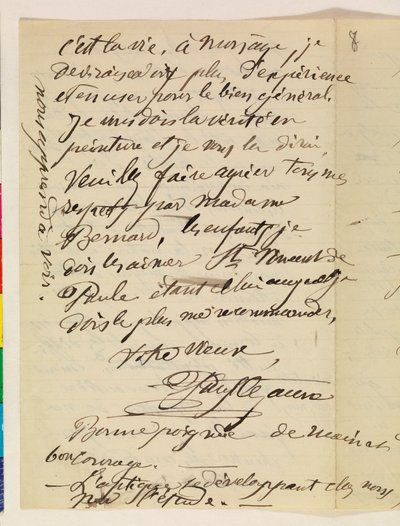 c'est la vie, à mon âge, je
devrais avoir plus d'expérience
et en user pour le bien général.
Je vous dois la vérité en
peinture et je vous la dirai,
Veuillez faire agréer tous mes
respects par madame
Bernard, les enfants, je
dois les aimer St Vincent de
Paule étant celui auquel je
dois le plus me recommander,
votre vieux,
Paul Cezanne
Bonne poignée de main et
bon courage.
L'optique, se développant chez nous
par l'étude.
nous apprend à voir.
8